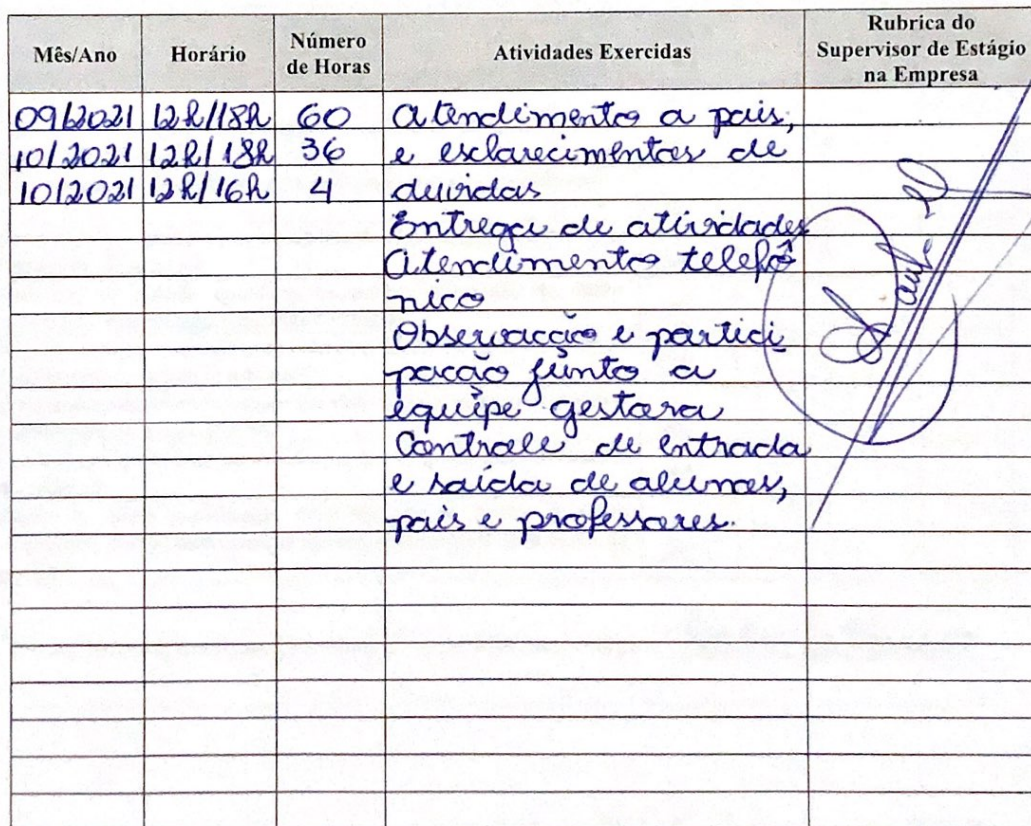 Mês/Ano Horário Número de Horas Atividades Exercidas Rubrica do Supervisor de Estágio na Empresa
09/2021 12h/18h 60 Atendimento a pais,
10/2021 12h/18h 36 e esclarecimentos de
10/2021 12h/16h 4 duvidas
Entrega de atividades
Atendimento telefô
nico
Observação e partici
pação junto a
equipe gestora
Controle de entrada
e saída de alunos,
pais e professores.